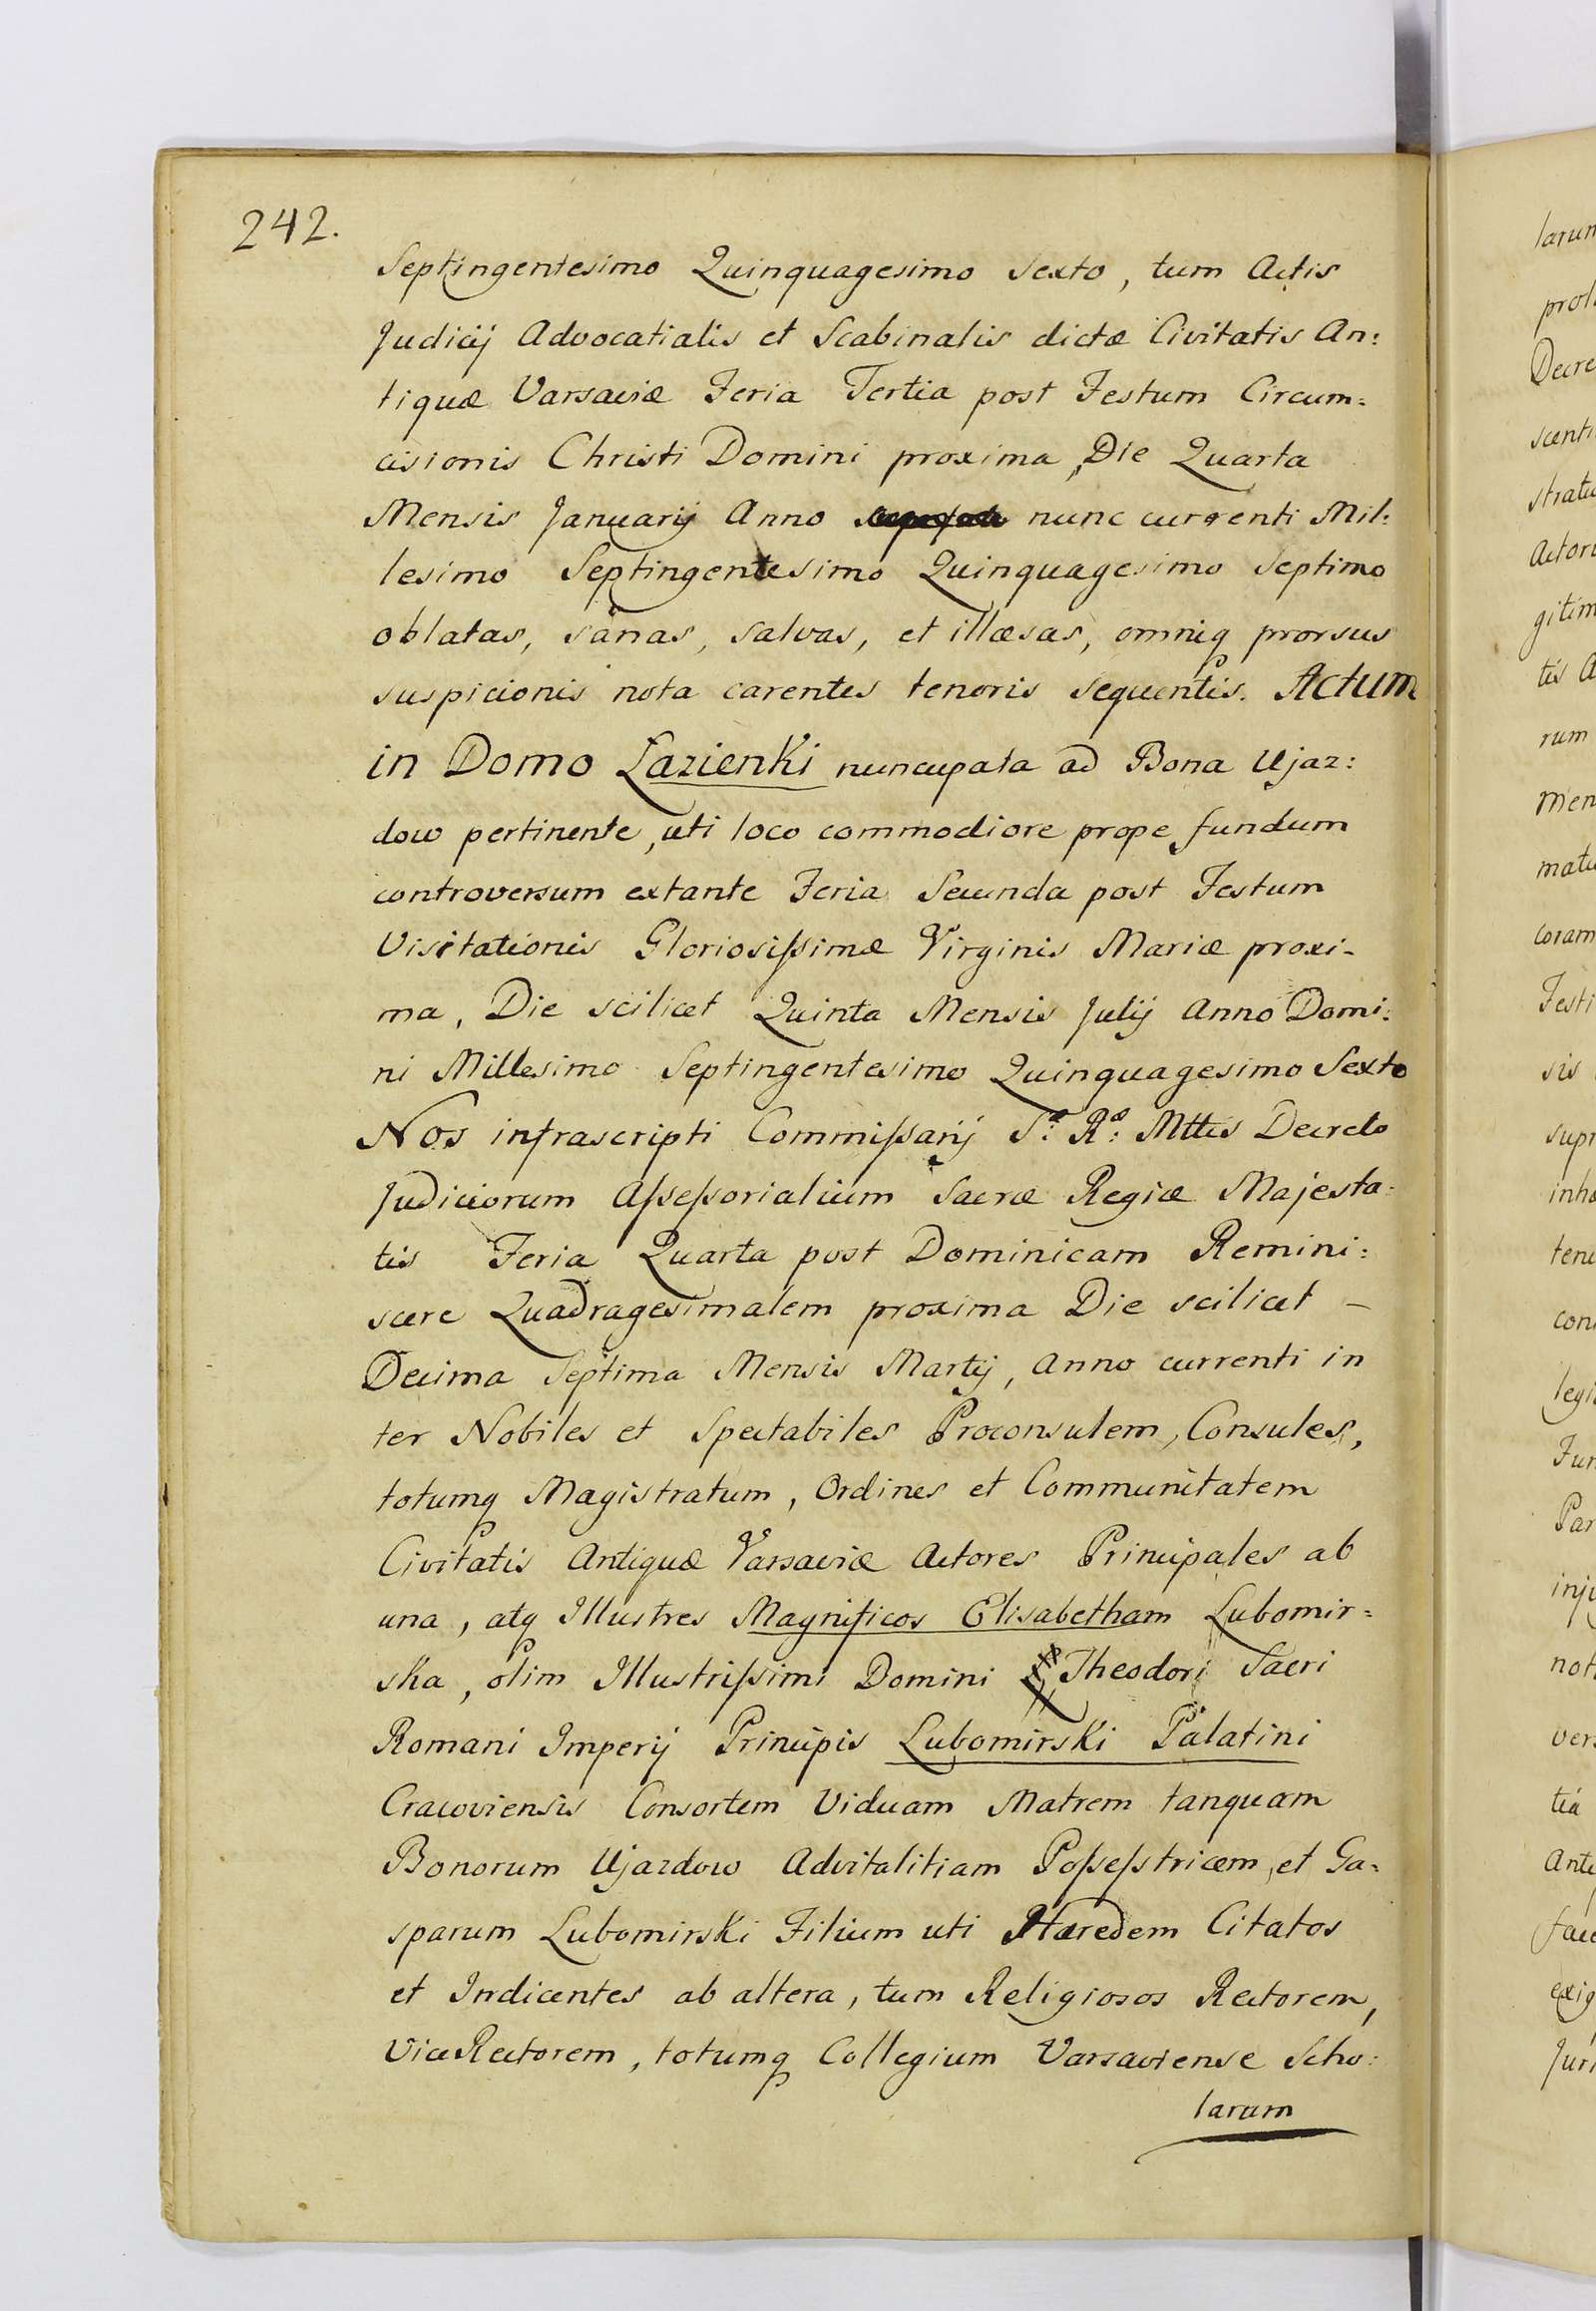 242.
Septingentesimo Quinquagesimo Sexto, tum Actis
Judicij Advocatialis et Scabinalis dictæ Civitatis An:
tiquæ Varsaviæ Feria Tertia post Festum Circum:
cisionis Christi Domini proxima, Die Quarta
Mensis Januarij Anno nunc currenti Mil:
lesimo Septingentesimo Quinquagesimo Septimo
oblatas, sanas, salvas, et illæsas, omniq prorsus
suspicionis nota carentes tenoris sequentis. Actum
in Domo Lazienki nuncupata ad Bona Ujaz:
dow pertinente, uti loco commodiore prope fundum
controversum extante Feria Secunda post Festum
Visitationis Gloriosißimæ Virginis Mariæ proxi-
ma, Die scilicet Quinta Mensis Julij Anno Domi:
ni Millesimo Septingentesimo Quinquagesimo Sexto
Nos infrascripti Commißarij S:æ R:æ Mttis Decreto
Judiciorum Aßeßorialium Sacræ Regiæ Majesta:
tis Feria Quarta post Dominicam Remini:
scere Quadragesimalem proxima Die scilicet –
Decima Septima Mensis Martij, Anno currenti in
ter Nobiles et Spectabiles Proconsulem, Consules,
totumq Magistratum, Ordines et Communitatem
Civitatis Antiquæ Varsaviæ Actores Principales ab
una, atq Illustres Magnificos Elisabetham Lubomir:
ska, olim Illustrißimi Domini Theodori Sacri
Romani Imperij Principis Lubomirski Palatini
Cracoviensis Consortem Viduam Matrem tanquam
Bonorum Ujazdow Advitalitiam Poßeßtricem, et Ga:
sparum Lubomirski Filium uti Hæredem Citatos
et Indicentes ab altera, tum Religiosos Rectorem,
ViceRectorem, totumq Collegium Varsaviense Scho:
larum
larum
Decre
Actor
rum
coram
sis